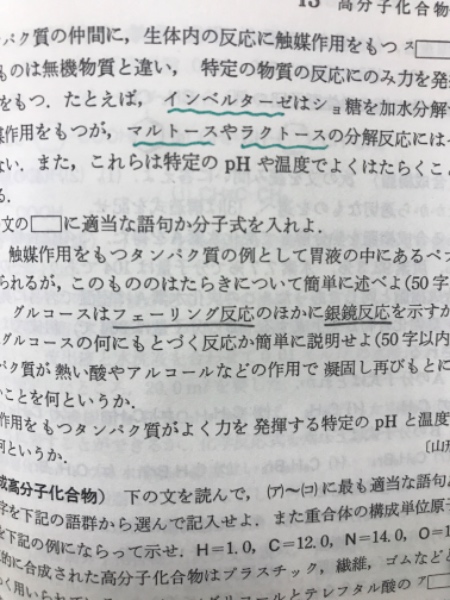 13 高分子化合物
パク質の仲間に，生体内の反応に触媒作用をもつ ス
ものは無機物質と違い， 特定の物質の反応にのみ力を発
をもつ．たとえば，インベルターゼはショ糖を加水分解
媒作用をもつが，マルトースやラクトースの分解反応には
ない．また，これらは特定の pH や温度でよくはたらくこ
る．
文の□に適当な語句か分子式を入れよ．
触媒作用をもつタンパク質の例として胃液の中にあるペ
られるが，このもののはたらきについて簡単に述べよ(50字
グルコースはフェーリング反応のほかに銀鏡反応を示すか
グルコースの何にもとづく反応か簡単に説明せよ(50字以内
パク質が熱い酸やアルコールなどの作用で凝固し再びもとに
いことを何というか．
作用をもつタンパク質がよく力を発揮する特定の pH と温度
何というか． 〔山形
成高分子化合物） 下の文を読んで，(ア)〜(コ)に最も適当な語句
字を下記の語群から選んで記入せよ．また重合体の構成単位原子
を下記の例にならって示せ．H＝1.0，C＝12.0，N＝14.0，O＝1
的に合成された高分子化合物はプラスチック，繊維，ゴムなどと
く用いられている． リコールとテレフタル酸の ア